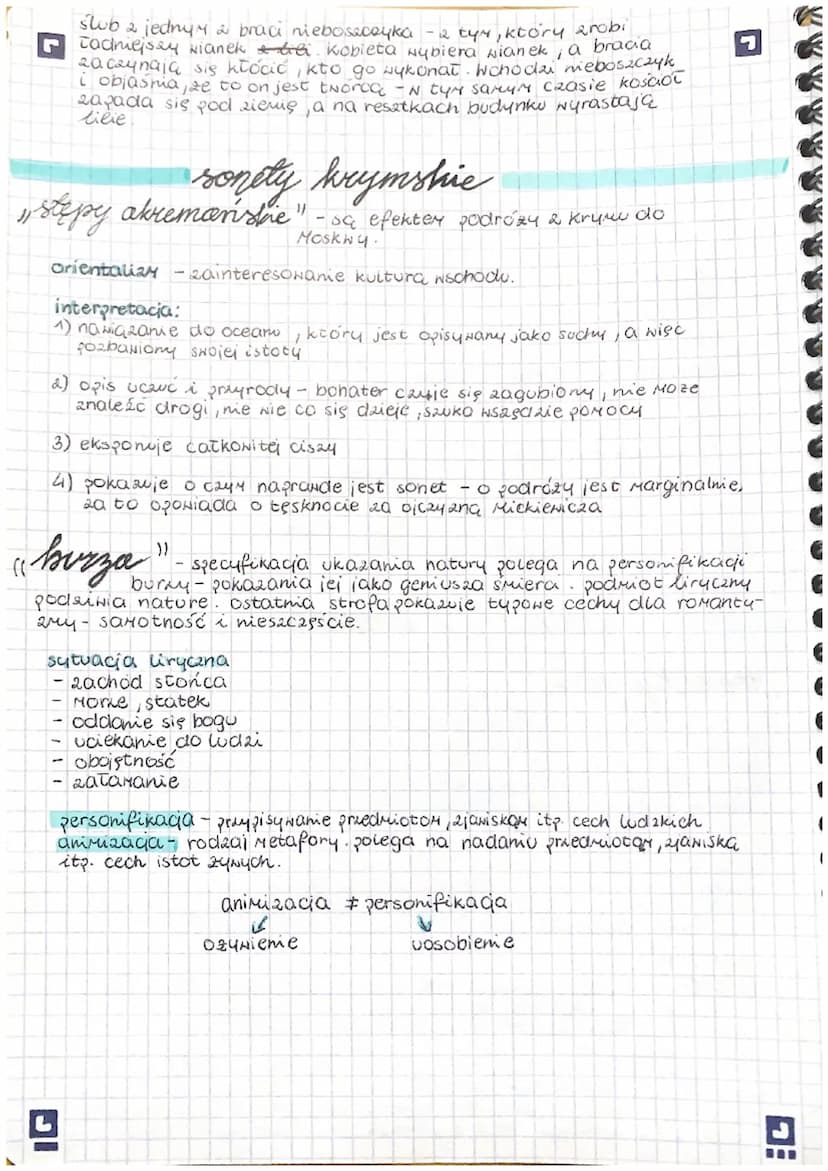 ślub z jednym z braci nieboszczyka - z tym, który zrobi
ładniejszy wianek. Kobieta wybiera wianek, a bracia
zaczynają się kłócić, kto go wykonał. Wchodzi nieboszczyk
i objaśnia, że to on jest twórcą - w tym samym czasie kościół
zapada się pod ziemię, a na resztkach budynku wyrastają
lilie.
sonety krymskie
„stepy akermańskie" - są efektem podróży z krymu do
Moskwy.
orientalizm - zainteresowanie kulturą wschodu.
interpretacja:
1) nawiązanie do oceanu, który jest opisywany jako suchy, a więc
pozbawiony swojej istoty
2) opis uczuć i przyrody - bohater czuje się zagubiony, nie może
znaleźć drogi, nie wie co się dzieje, szuka wszędzie pomocy
3) eksponuje całkowitej ciszy
4) pokazuje o czym naprawdę jest sonet - o podróży jest marginalnie,
za to opowiada o tęsknocie za ojczyzną Mickiewicza
„burza" - specyfikacja ukazania natury polega na personifikacji
burzy - pokazania jej jako geniusza śmierci. podmiot liryczny
podziwia naturę. ostatnia strofa pokazuje typowe cechy dla romanty-
zmy - samotność i nieszczęście.
sytuacja liryczna
- zachód słońca
- morze, statek
- oddanie się bogu
- uciekanie do ludzi
- obojętność
- załamanie
personifikacja - przypisywanie przedmiotom, zjawiskom itp. cech ludzkich
animizacja - rodzaj metafory. polega na nadaniu przedmiotom, zjawiską
itp. cech istot żywych.
animizacja ≠ personifikacja
ożywienie uosobienie